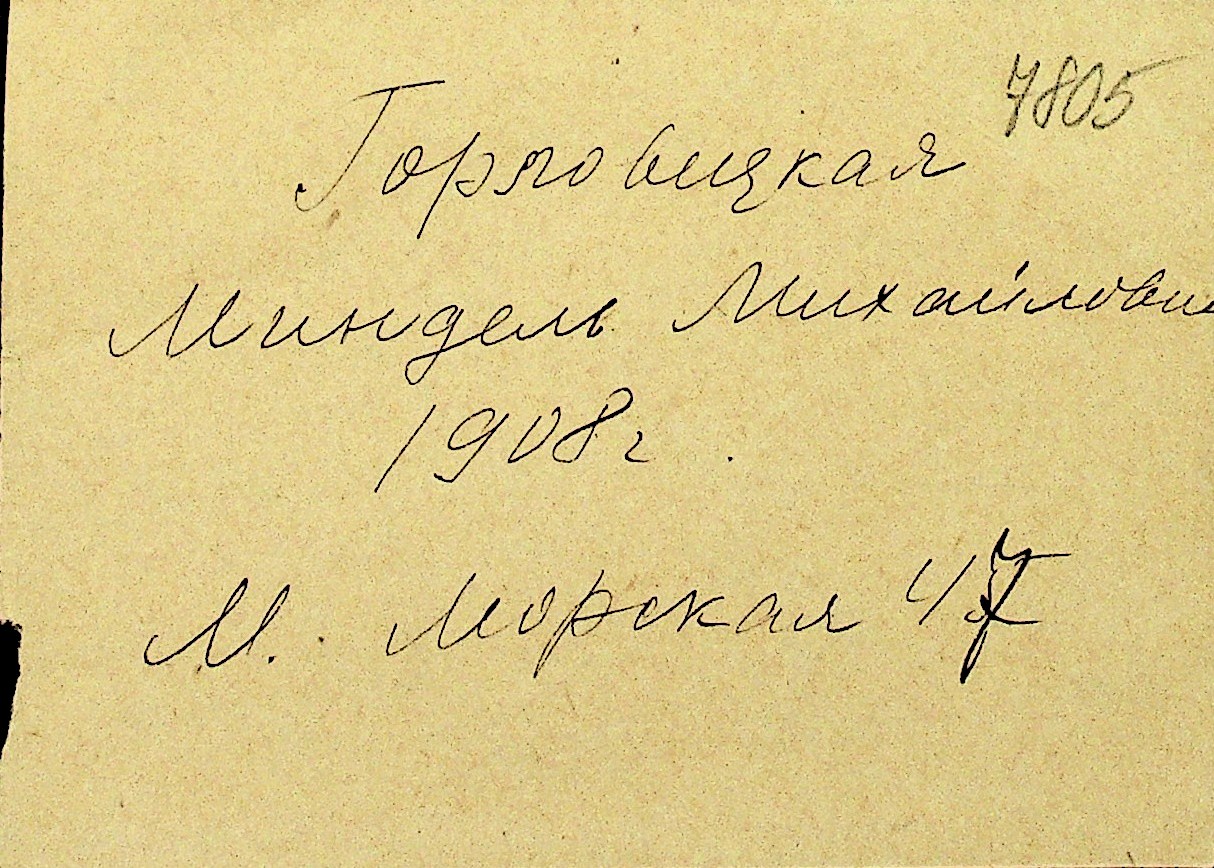 7805
Горловицкая
Миндель Михайловн
1908 г.
М. Морская 47